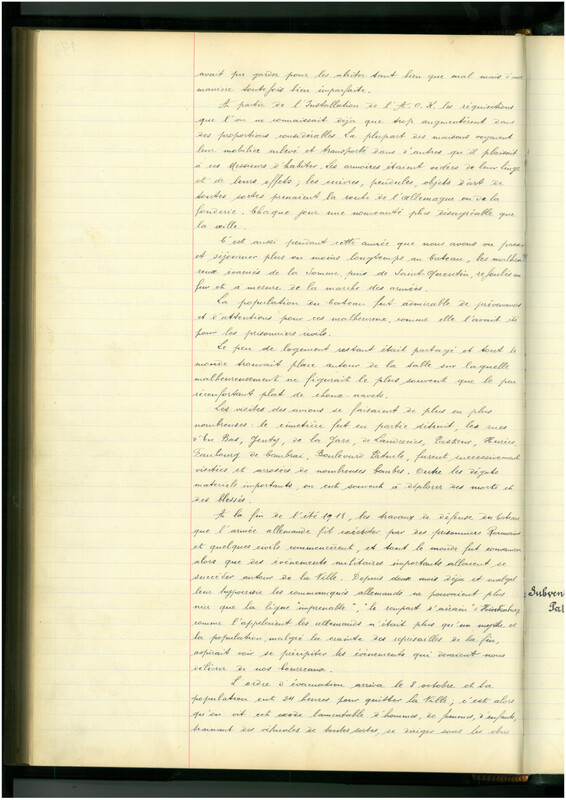 avait pu garder pour les abriter tant bien que mal mais d'une
manière toutefois bien imparfaite.
A partir de l'Installation de l'A.O.K. les réquisitions
que l'on ne connaissait déja que trop augmentèrent dans
des proportions considérables. La plupart des maisons voyaient
leur mobilier enlevé et transporté dans d'autres qu'il plaisait
à ces Messieurs d'habiter. Les armoires étaient vidées de leur linge
et de leurs effets ; les cuivres, pendules, objets d'art de
toutes sortes prenaient la route de l'Allemagne ou de la
fonderie. Chaque jour une nouveauté plus désagréable que
la veille.
C'est aussi pendant cette année que nous avons vu passer
et séjourner plus ou moins longtemps au Cateau, les malheu-
reux évacués de la Somme, puis de Saint-Quentin, refoulés au
fur et à mesure de la marche des armées.
La population du Cateau fut admirable de prévenances
et d'attentions pour ces malheureux, comme elle l'avait été
pour les prisonniers civils.
Le peu de logement restant était partagé et tout le
monde trouvait place autour de la table sur laquelle
malheureusement ne figurait le plus souvent que le peu
réconfortant plat de choux-navets.
Les visites des avions se faisaient de plus en plus
nombreuses : le cimetière fut en partie détruit, les rues
d'En Bas, Genty, de la Gare, de Landrecies, Pasteur,
Faubourg de Cambrai, Boulevard Paturle, furent successivement
visitées et arrosées de nombreuses bombes. Outre les dégâts
matériels importants, on eut souvent à déplorer des morts et
des blessés.
A la fin de l'été 1918, les travaux de défense du Cateau
que l'armée allemande fit exécuter par des prisonniers Roumains
et quelques civils commencèrent, et tout le monde fut convaincu
alors que des événements militaires importants allaient se
succéder autour de la Ville. Depuis deux mois déja et malgré
leur hypocrisie les communiqués allemands ne pouvaient plus
nier que la ligne "imprenable", "le rempart d'airain" d'Hindenburg
comme l'appelaient les allemands n'était plus qu'un mythe et
la population, malgré la crainte des représailles de la fin,
aspirait voir se précipiter les événements qui devaient nous
délivrer de nos bourreaux.
L'ordre d'évacuation arriva le 8 octobre et la
population eut 24 heures pour quitter la Ville ; c'est alors
qu'on vit cet exode lamentable d'hommes, de femmes, d'enfants,
traînant des véhicules de toutes sortes, se diriger sous les obus
Subven
Par